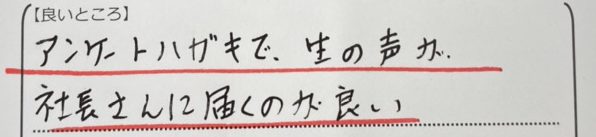 【良いところ】
アンケートハガキで、生の声が、
社長さんに届くのが良い